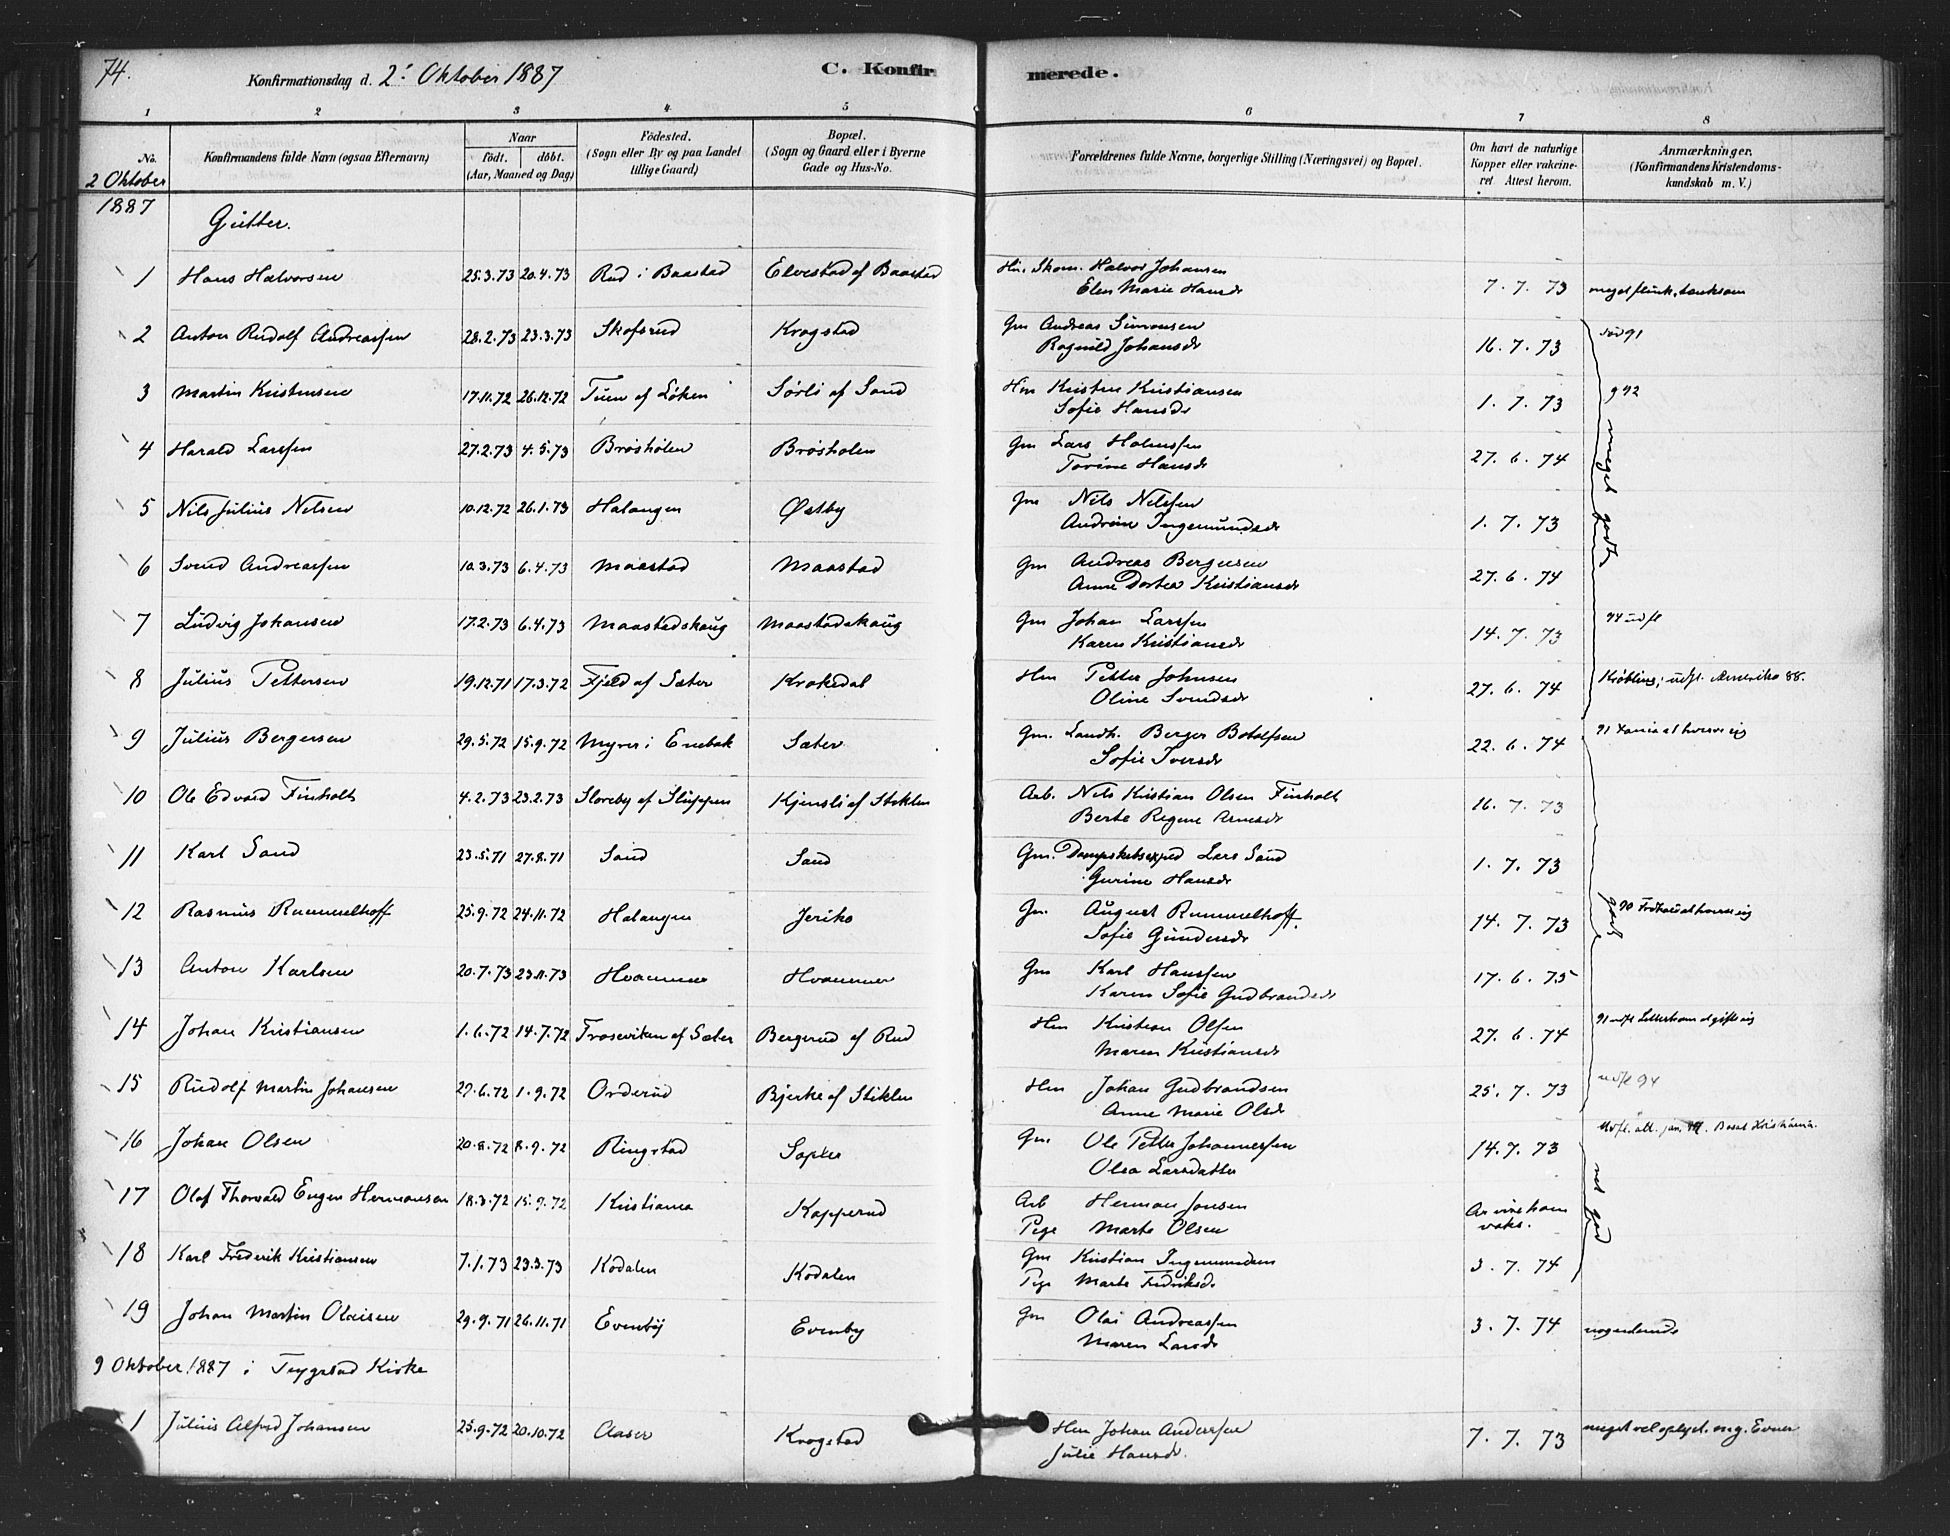 74.
Konfirmationsdag d. 2' Oktober 1887
C. Konfirmerede.
1 2 3 4 5 6 7 8
No.
Konfirmandens fulde Navn (ogsaa Efternavn)
Naar
født. døbt.
(Aar, Maaned og Dag)
Fødested.
(Sogn eller By og paa Landet
tillige Gaard)
Bopæl.
(Sogn og Gaard eller i Byerne
Gade og Hus-No.
Forældrenes fulde Navne, borgerlige Stilling (Næringsvei) og Bopæl.
Om havt de naturlige
Kopper eller vakcine-
ret Attest herom.
Anmærkninger.
(Konfirmandens Kristendoms-
kundskab m. V.)
2 Oktober
1887 Gutter.
1 Hans Halvorsen 25.3.73 20.4.73 Rud i Baastad Elvestad af Baastad Hm. Skom. Halvor Johansen
Elen Marie Hansdr 7. 7. 73 meget flink, tænksom
2 Anton Rudolf Andreassen 28.2.73 23.3.73 Skofsrud Krogstad Gm Andreas Simonsen
Ragnild Johansdr 16. 7. 73
3 Martin Kristensen 17.11.72 26.12.72 Tuen af Løken Sørli af Sand Hm Kristen Kristiansen
Sofie Hansdr 1. 7. 73
4 Harald Larssen 27.2.73 4.5.73 Brøsholen Brøsholen Gm Lars Holmssen
Torine Hansdr 27. 6. 74
meget godt
5 Nils Julius Nilsen 10.12.72 26.1.73 Halangen Østby Gm Nils Nilssen
Andrine Ingemundsdr 1. 7. 73
6 Svend Andreassen 10.3.73 6.4.73 Maastad Maastad Gm Andreas Bergersen
Anne Dortea Kristiansdr 27. 6. 74
7 Ludvig Johansen 17.2.73 6.4.73 Maastadskaug Maastadskaug Gm Johan Larssen
Karen Kristiansdr 14. 7. 73 94 udfl
8 Julius Pettersen 19.12.71 17.3.72 Fjeld af Sæter Krokedal Hm Petter Johnsen
Oline Svendsdr 27. 6. 74 Krøbling; udfl. Amerika 88.
9 Julius Bergersen 29.5.72 15.9.72 Myrer i Enebak Sæter Gm. Landh. Berger Botolfsen
Sofie Iversdr 22. 6. 74
10 Ole Edvard Finholt 4.2.73 23.2.73 Storeby af Sluppen Kjensli af Stiklen Arb. Nils Kristian Olsen Finholt
Berte Regine Arnesdr 16. 7. 73
11 Karl Sand 23.5.71 27.8.71 Sand Sand Gm. Dampskibsexped Lars Sand
Gurine Hansdr 1. 7. 73
12 Rasmus Rummelhoff 25.9.72 24.11.72 Halangen Jeriko Gm. August Rummelhoff.
Sofie Gundersdr 14. 7. 73
godt
13 Anton Karlsen 20.7.73 23.11.73 Hvammer Hvammer Gm Karl Hanssen
Karen Sofie Gudbrandsdr 17. 6. 75
14 Johan Kristiansen 1.6.72 14.7.72 Troseviken af Sæter Bergerud af Rud Hm Kristian Olsen
Maren Kristiansdr 27. 6. 74
15 Rudolf Martin Johansen 27.6.72 1.9.72 Orderud Bjerke af Stiklen Hm Johan Gudbrandsen
Anne Marie Olsdr 25. 7. 73 udfl 94
16 Johan Olsen 20.8.72 8.9.72 Ringstad Sopler Gm Ole Petter Johannessen
Olea Larsdatter 14. 7. 73
17 Olaf Thorvald Eugen Hermansen 18.3.72 15.9.72 Kristiania Kopperud Arb Herman Jonsen
Pige Marte Olsen
18 Karl Frederik Kristiansen 7.1.73 23.3.73 Kodalen Kodalen Gm Kristian Ingemundsen
Pige Marte Fredriksdr 3. 7. 74
19 Johan Martin Olaisen 29.9.71 26.11.71 Evenby Evenby Gm Olai Andreassen
Maren Larsdr 3. 7. 74 nogenlunde
9 Oktober 1887 i Trygstad Kirke
1 Julius Alfred Johansen 25.9.72 20.10.72 Aaser Krogstad Hm Johan Anderssen
Julie Hansdr. 7. 7. 73 meget vel oplyst. mg. Evner